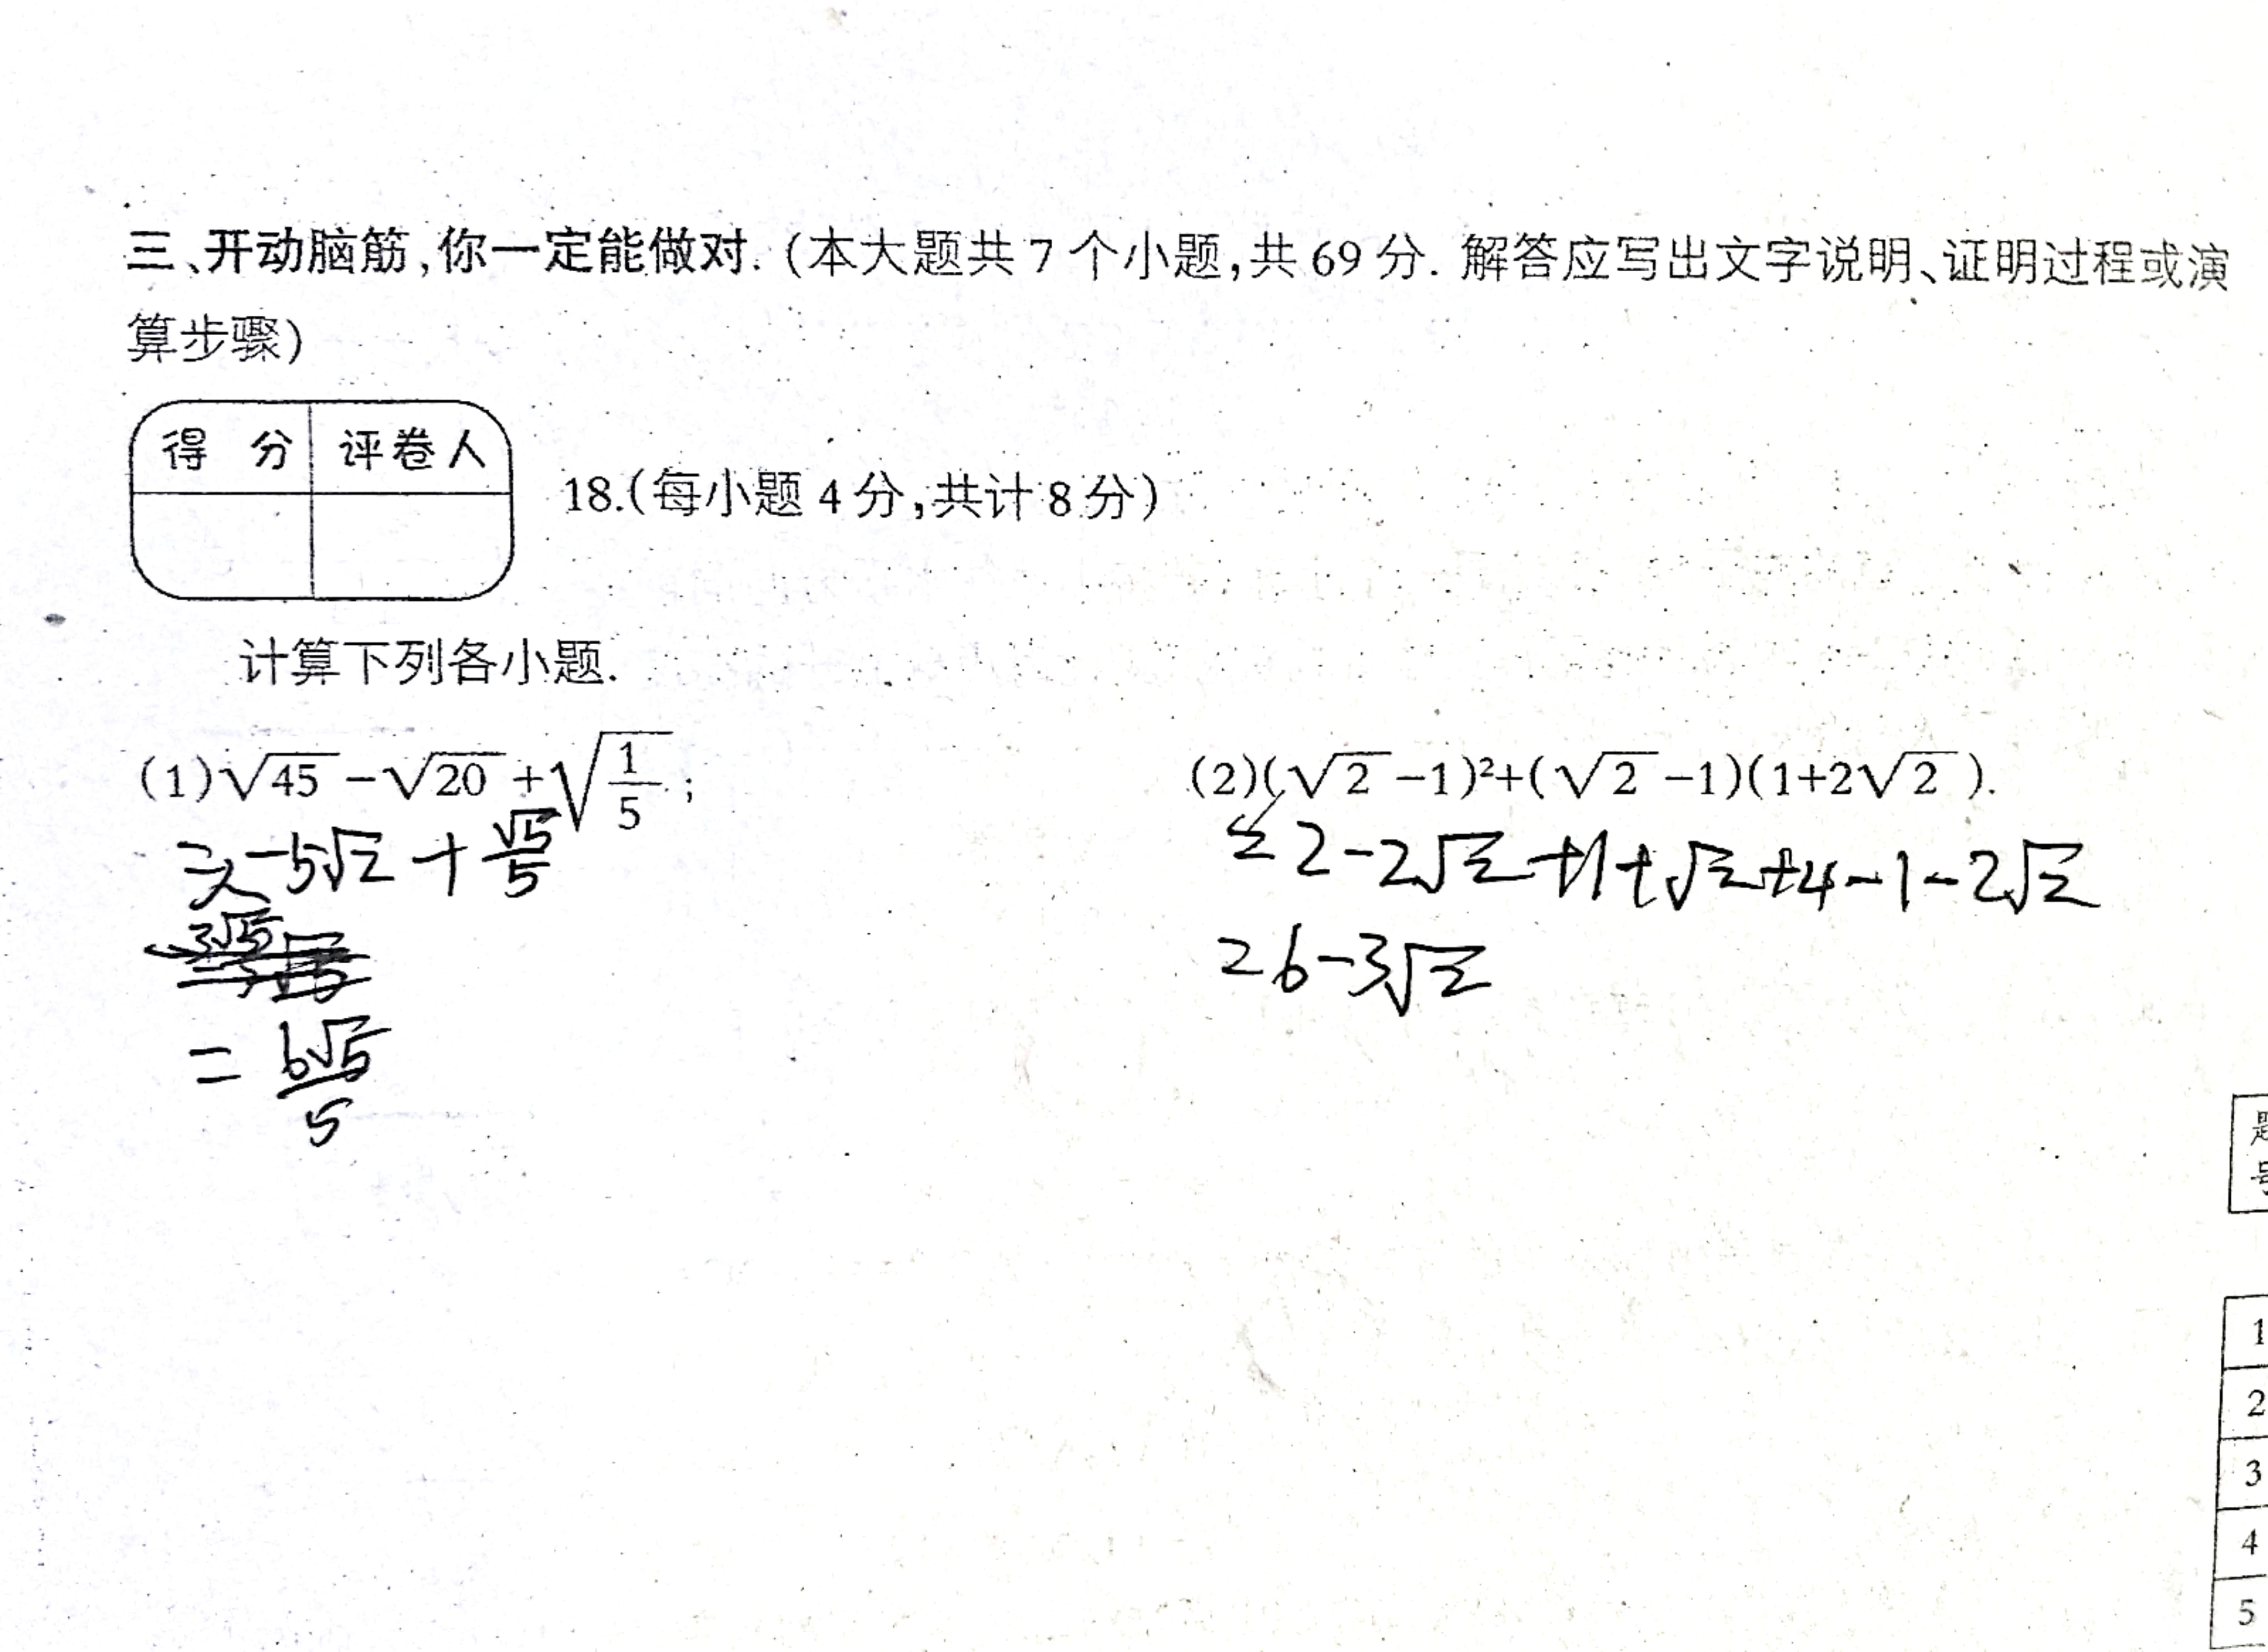 三、开动脑筋,你一定能做对.(本大题共7个小题,共69分.解答应写出文字说明、证明过程或演
算步骤)
得 分 评卷人
18.(每小题4分,共计8分)
计算下列各小题.
(1)√45-√20+√(1/5);
(2)(√2-1)²+(√2-1)(1+2√2).
-5√2+√5/5
=2-2√2+1+√2+4-1-2√2
=6-3√2
=6√5/5
题
号
1
2
3
4
5